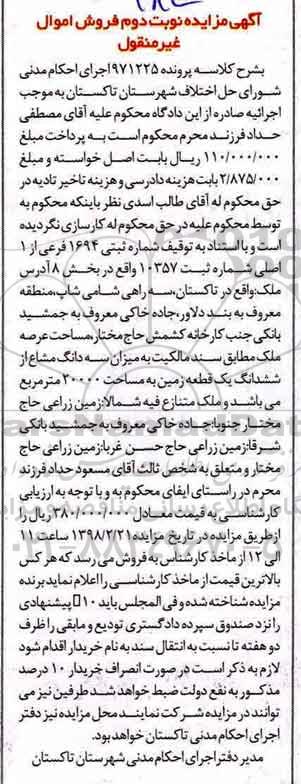 آگهی مزایده نوبت دوم فروش اموال
غیرمنقول
بشرح کلاسه پرونده ۹۷۱۲۲۵ اجرای احکام مدنی
شورای حل اختلاف شهرستان تاکستان به موجب
اجرائیه صادره از این دادگاه محکوم علیه آقای مصطفی
حداد فرزند محرم محکوم است به پرداخت مبلغ
۱۱۰/۰۰۰/۰۰۰ ریال بابت اصل خواسته و مبلغ
۲/۸۷۵/۰۰۰ بابت هزینه دادرسی و هزینه تاخیر تادیه در
حق محکوم له آقای طالب اسدی نظر باینکه محکوم به
توسط محکوم علیه در حق محکوم له کارسازی نگردیده
است و با استناد به توقیف شماره ثبتی ۱۶۹۴ فرعی از ۱
اصلی شماره ثبت ۱۰۳۵۷ واقع در بخش ۸ آدرس
ملک:واقع در تاکستان،سه راهی شامی شاپ،منطقه
معروف به بند دلاور،جاده خاکی معروف به جمشید
بانکی جنب کارخانه کشمش حاج مختار،مساحت عرصه
ملک مطابق سند مالکیت به میزان سه دانگ مشاع از
ششدانگ یک قطعه زمین به مساحت ۲۰۰۰۰ مترمربع
می باشد و ملک متنازع فیه شمالا:زمین زراعی حاج
مختار جنوبا:جاده خاکی معروف به جمشید بانکی
شرقا:زمین زراعی حاج حسن غربا:زمین زراعی حاج
مختار و متعلق به شخص ثالث آقای مسعود حداد فرزند
محرم در راستای ایفای محکوم به و با توجه به ارزیابی
کارشناسی به قیمت معادل ۳۸۰/۰۰۰/۰۰۰ ریال را
ازطریق مزایده در تاریخ مزایده ۱۳۹۸/۲/۲۱ ساعت ۱۱
الی ۱۲ از ماخذ کارشناس به فروش می رسد که هر کس
بالاترین قیمت از ماخذ کارشناسی را اعلام نماید برنده
مزایده شناخته شده و فی المجلس باید ۱۰٪ پیشنهادی
را نزد صندوق سپرده دادگستری تودیع و مابقی را ظرف
دو هفته تا نسبت به انتقال سند به نام خریدار اقدام شود
لازم به ذکر است در صورت انصراف خریدار ۱۰ درصد
مذکور به نفع دولت ضبط خواهد شد طرفین نیز می
توانند در مزایده شرکت نمایند محل مزایده نیز دفتر
اجرای احکام مدنی تاکستان خواهد بود.
مدیر دفتر اجرای احکام مدنی شهرستان تاکستان